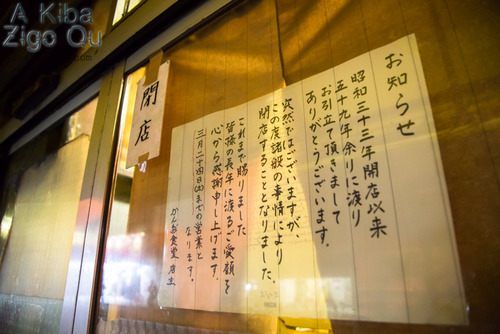 A Kiba
Zigo Qu
お知らせ
昭和三十三年開店以来
五十九年余りに渡り
お引立て頂きまして
ありがとうございます。
突然ではございますが、
この度諸般の事情により
閉店することとなりました。
これまで賜りました
皆様の長年に渡るご愛顧を
心から感謝申し上げます。
三月二十四日(土)までの営業と
なります。
かんだ食堂 店主
閉店